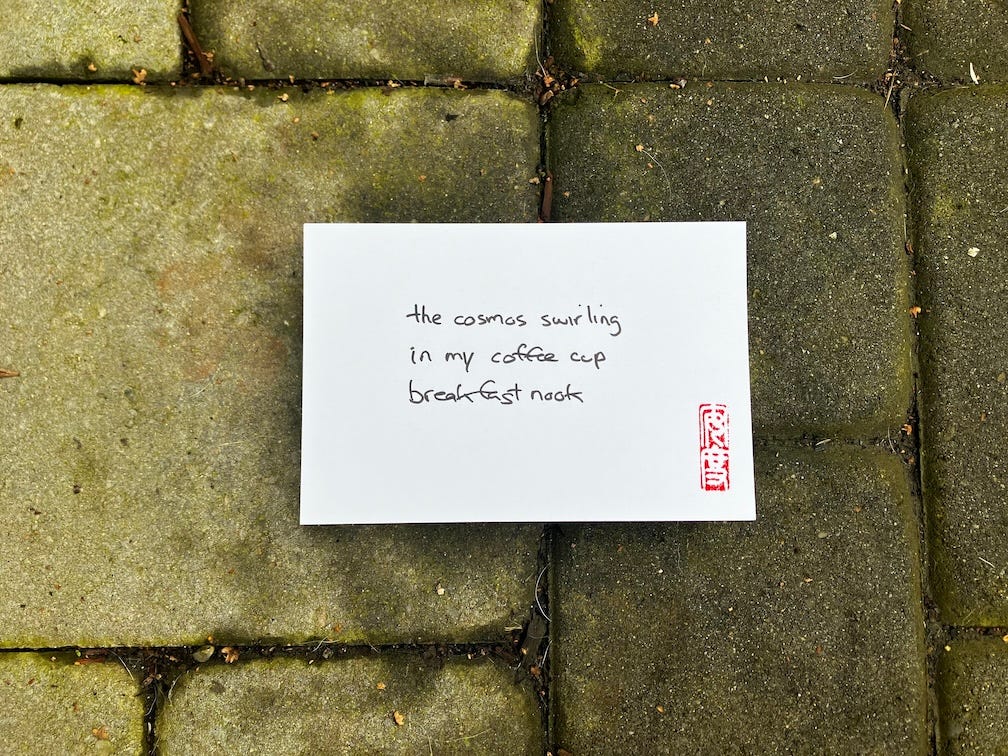 the cosmos swirling
in my coffee cup
breakfast nook